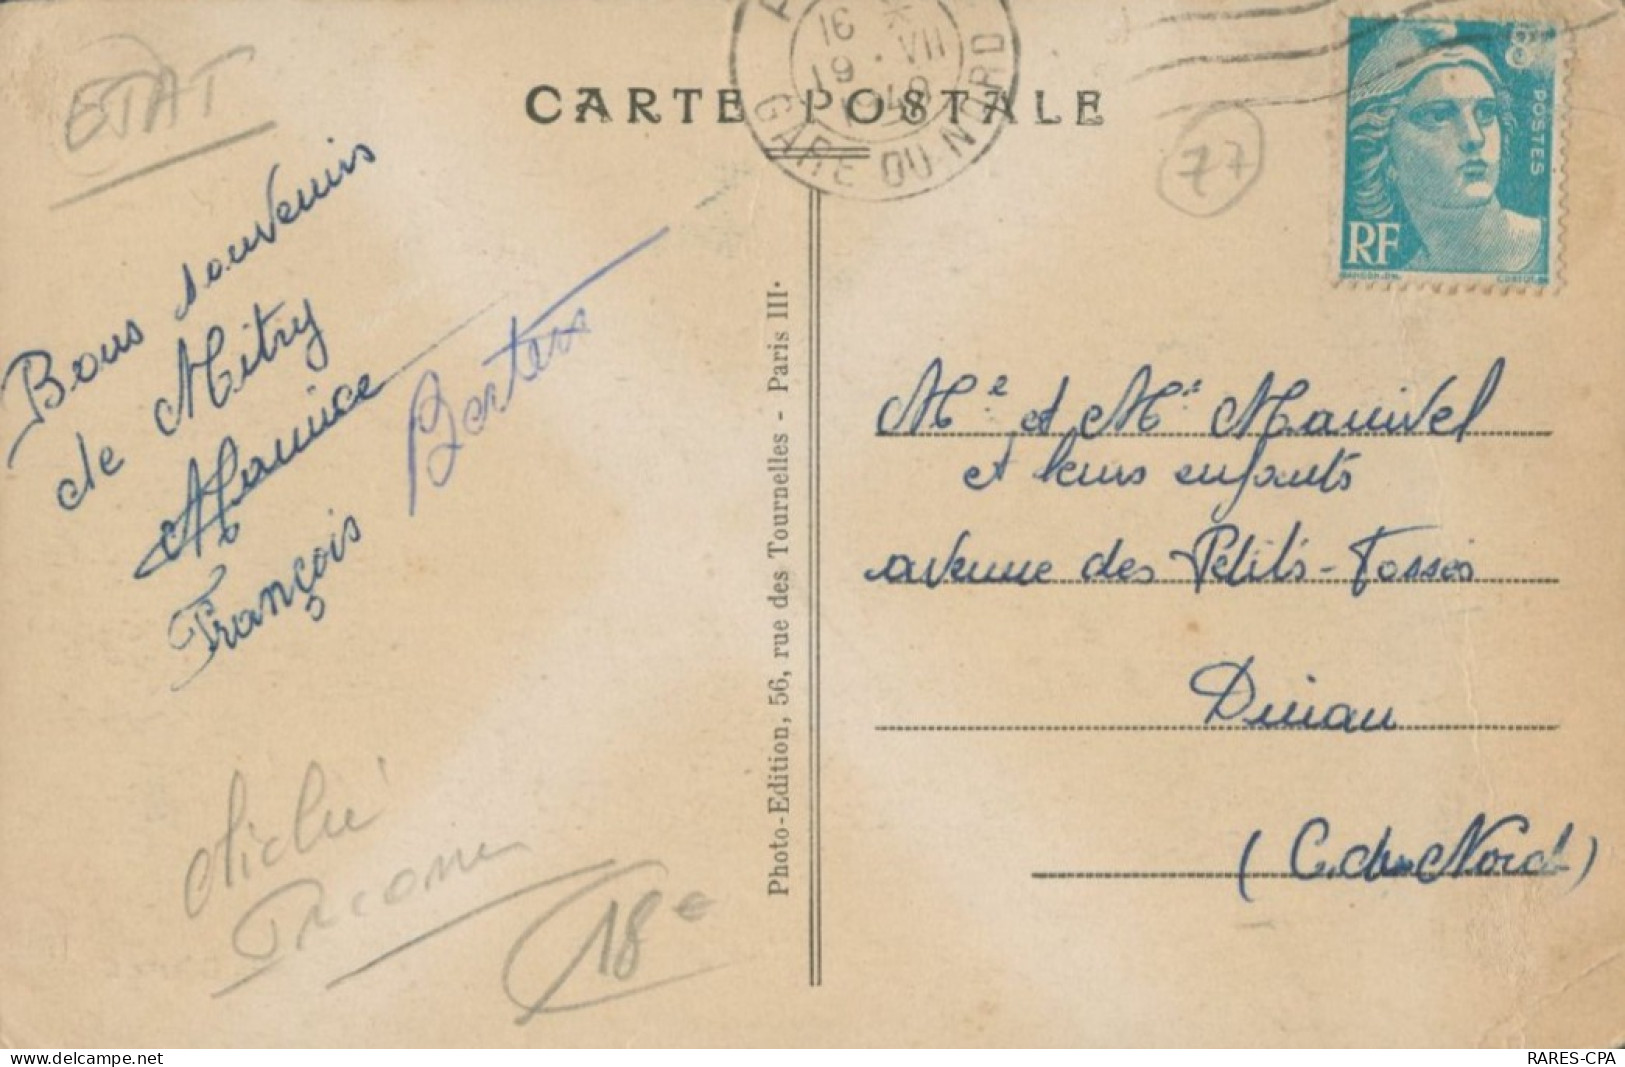 CARTE POSTALE
16 *
19 · VII
GARE DU NORD
8F
POSTES
RF
ETAT
77
Bons souvenirs
de Mitry
Maurice
François Bertens
Mr et Me Manivel
et leurs enfants
avenue des Petits-Fossés
Dinan
(C. du Nord)
Photo-Edition, 56, rue des Tournelles - Paris III·
cliché
18 €
www.delcampe.net
RARES-CPA